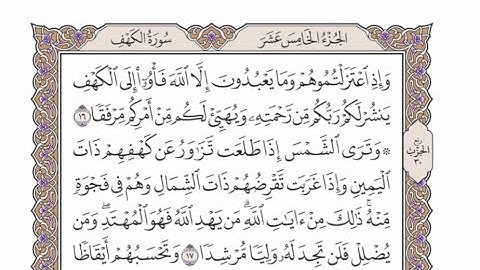 الجُزْءُ الخَامِسَ عَشَرَ
سُورَةُ الكَهْفِ
وَإِذِ ٱعْتَزَلْتُمُوهُمْ وَمَا يَعْبُدُونَ إِلَّا ٱللَّهَ فَأْوُۥٓا۟ إِلَى ٱلْكَهْفِ
يَنشُرْ لَكُمْ رَبُّكُم مِّن رَّحْمَتِهِۦ وَيُهَيِّئْ لَكُم مِّنْ أَمْرِكُم مِّرْفَقًا ١٦
۞ وَتَرَى ٱلشَّمْسَ إِذَا طَلَعَت تَّزَٰوَرُ عَن كَهْفِهِمْ ذَاتَ
ٱلْيَمِينِ وَإِذَا غَرَبَت تَّقْرِضُهُمْ ذَاتَ ٱلشِّمَالِ وَهُمْ فِى فَجْوَةٍ
مِّنْهُ ۚ ذَٰلِكَ مِنْ ءَايَٰتِ ٱللَّهِ ۗ مَن يَهْدِ ٱللَّهُ فَهُوَ ٱلْمُهْتَدِ ۖ وَمَن
يُضْلِلْ فَلَن تَجِدَ لَهُۥ وَلِيًّا مُّرْشِدًا ١٧ وَتَحْسَبُهُمْ أَيْقَاظًا
ربع
الحزب
٣٠